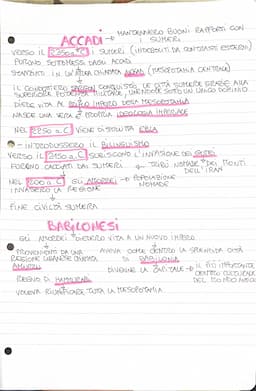 ACCADI → MANTENNERO BUONI RAPPORTI CON
I SUMERI
VERSO IL 2350 a.C. I SUMERI (INDEBOLITI DA CONTRASTI ESTERNI)
FURONO SOTTOMESSI DAGLI ACCADI
STANZIATI IN UN'AREA CHIAMATA ACCAD (MESOPOTAMIA CENTRALE)
IL CONDOTTIERO SARGON CONQUISTÒ LE CITTÀ SUMERE GRAZIE ALLA
SUPERIORE POTENZA MILITARE, UNENDOLE SOTTO UN UNICO DOMINIO
DIEDE VITA AL PRIMO IMPERO DELLA MESOPOTAMIA
NASCE UNA VERA E PROPRIA IDEOLOGIA IMPERIALE
NEL 2250 a.C. VIENE DISTRUTTA EBLA
→ INTRODUSSERO IL BILINGUISMO
VERSO IL 2150 a.C. SUBISCONO L'INVASIONE DEI GUTEI
FURONO CACCIATI DAI SUMERI → TRIBÙ NOMADE DEI MONTI
DELL'IRAN
NEL 2000 a.C. GLI AMORREI → POPOLAZIONE
INVASERO LA REGIONE NOMADE
FINE CIVILTÀ SUMERA
BABILONESI
GLI AMORREI DIEDERO VITA A UN NUOVO IMPERO
PROVENIENTI DA UNA AVEVA COME CENTRO LA SPLENDIDA CITTÀ
REGIONE CHIAMATA DI BABILONIA
AMURRU DIVENNE LA CAPITALE → IL PIÙ IMPORTANTE
CENTRO CULTURALE
REGNO DI HAMMURABI DEL MONDO ANTICO
VOLEVA RIUNIFICARE TUTTA LA MESOPOTAMIA